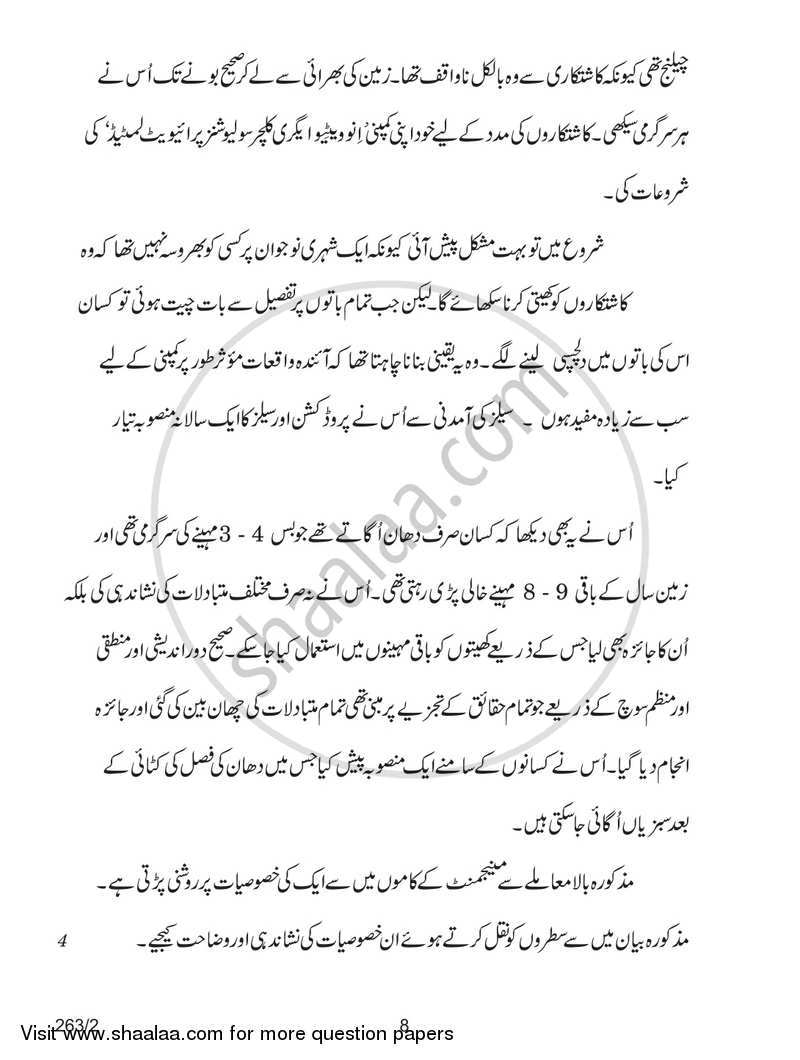 چیلنج تھی کیونکہ کاشتکاری سے وہ بالکل ناواقف تھا۔ زمین کی بھرائی سے لے کر صحیح بونے تک اُس نے
ہر سرگرمی سیکھی۔ کاشتکاروں کی مدد کے لیے خود اپنی کمپنی ’اِنوویٹیو ایگری کلچر سولیوشنز پرائیویٹ لمٹیڈ‘ کی
شروعات کی۔
شروع میں تو بہت مشکل پیش آئی کیونکہ ایک شہری نوجوان پر کسی کو بھروسہ نہیں تھا کہ وہ
کاشتکاروں کو کھیتی کرنا سکھائے گا۔ لیکن جب تمام باتوں پر تفصیل سے بات چیت ہوئی تو کسان
اس کی باتوں میں دلچسپی لینے لگے۔ وہ یہ یقینی بنانا چاہتا تھا کہ آئندہ واقعات مؤثر طور پر کمپنی کے لیے
سب سے زیادہ مفید ہوں ۔ سیلز کی آمدنی سے اُس نے پروڈکشن اور سیلز کا ایک سالانہ منصوبہ تیار
کیا۔
اُس نے یہ بھی دیکھا کہ کسان صرف دھان اُگاتے تھے جو بس 4 - 3 مہینے کی سرگرمی تھی اور
زمین سال کے باقی 9 - 8 مہینے خالی پڑی رہتی تھی۔ اُس نے نہ صرف مختلف متبادلات کی نشاندہی کی بلکہ
اُن کا جائزہ بھی لیا جس کے ذریعے کھیتوں کو باقی مہینوں میں استعمال کیا جا سکے۔ صحیح دور اندیشی اور منطقی
اور منظم سوچ کے ذریعے جو تمام حقائق کے تجزیے پر مبنی تھی تمام متبادلات کی چھان بین کی گئی اور جائزہ
انجام دیا گیا۔ اُس نے کسانوں کے سامنے ایک منصوبہ پیش کیا جس میں دھان کی فصل کی کٹائی کے
بعد سبزیاں اُگائی جا سکتی ہیں۔
مذکورہ بالا معاملے سے مینیجمنٹ کے کاموں میں سے ایک کی خصوصیات پر روشنی پڑتی ہے۔
مذکورہ بیان میں سے سطروں کو نقل کرتے ہوئے ان خصوصیات کی نشاندہی اور وضاحت کیجیے۔ 4
shaalaa.com
263/2 8
Visit www.shaalaa.com for more question papers